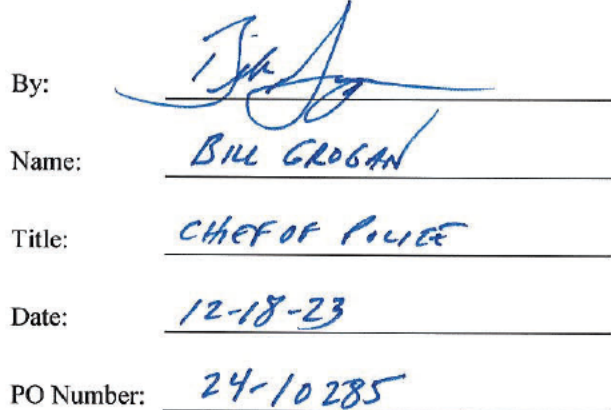 By:
Name: BILL GROGAN
Title: CHIEF OF POLICE
Date: 12-18-23
PO Number: 24-10285